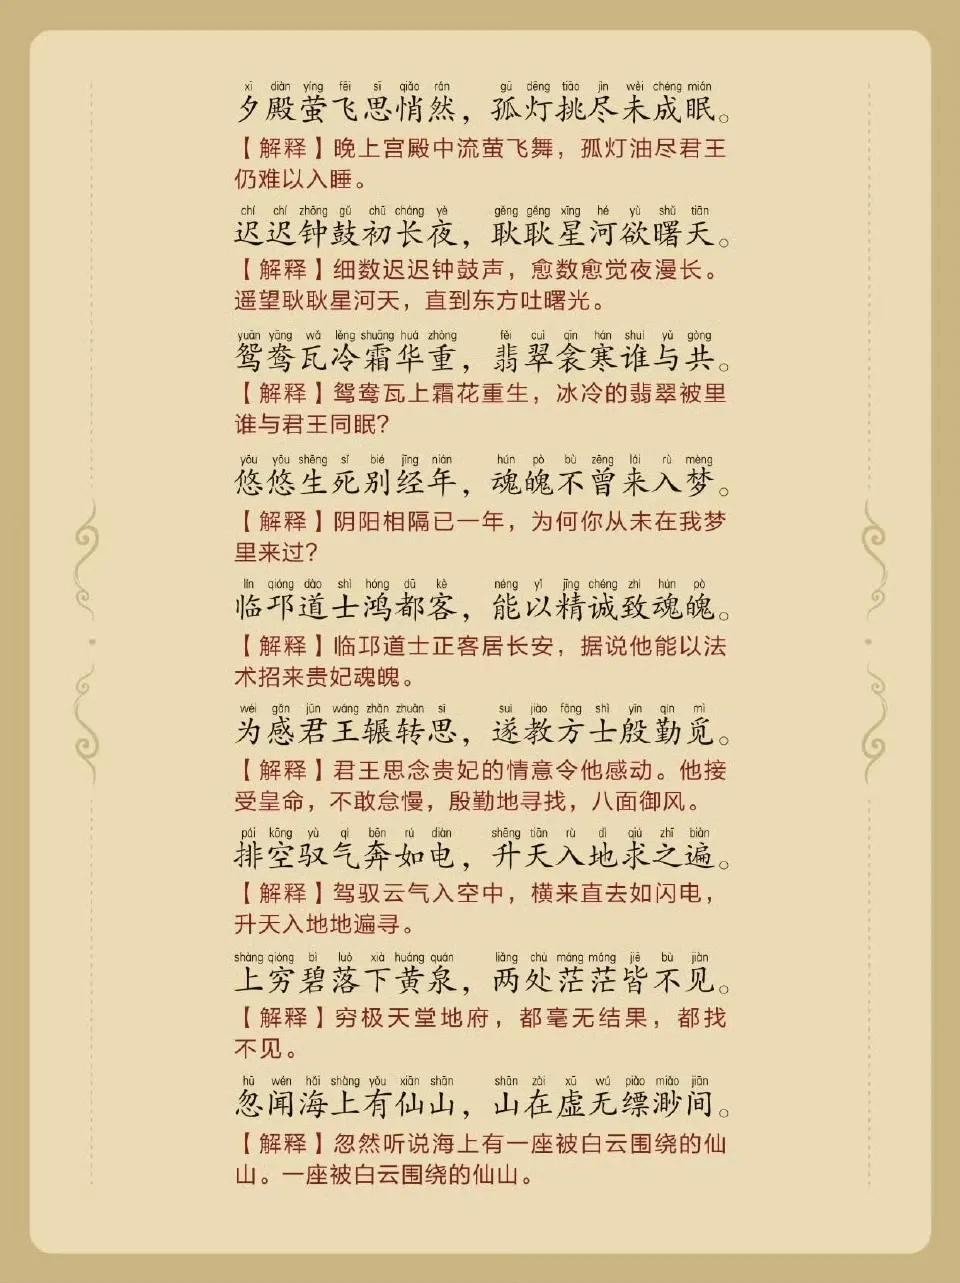 xī diàn yíng fēi sī qiǎo rán gū dēng tiǎo jìn wèi chéng mián
夕殿萤飞思悄然，孤灯挑尽未成眠。
【解释】晚上宫殿中流萤飞舞，孤灯油尽君王
仍难以入睡。
chí chí zhōng gǔ chū cháng yè gěng gěng xīng hé yù shǔ tiān
迟迟钟鼓初长夜，耿耿星河欲曙天。
【解释】细数迟迟钟鼓声，愈数愈觉夜漫长。
遥望耿耿星河天，直到东方吐曙光。
yuān yāng wǎ lěng shuāng huá zhòng fěi cuì qīn hán shuí yǔ gòng
鸳鸯瓦冷霜华重，翡翠衾寒谁与共。
【解释】鸳鸯瓦上霜花重生，冰冷的翡翠被里
谁与君王同眠？
yōu yōu shēng sǐ bié jīng nián hún pò bù zēng lái rù mèng
悠悠生死别经年，魂魄不曾来入梦。
【解释】阴阳相隔已一年，为何你从未在我梦
里来过？
lín qióng dào shì hóng dū kè néng yǐ jīng chéng zhì hún pò
临邛道士鸿都客，能以精诚致魂魄。
【解释】临邛道士正客居长安，据说他能以法
术招来贵妃魂魄。
wèi gǎn jūn wáng zhǎn zhuǎn sī suì jiào fāng shì yīn qín mì
为感君王辗转思，遂教方士殷勤觅。
【解释】君王思念贵妃的情意令他感动。他接
受皇命，不敢怠慢，殷勤地寻找，八面御风。
pái kōng yù qì bēn rú diàn shēng tiān rù dì qiú zhī biàn
排空驭气奔如电，升天入地求之遍。
【解释】驾驭云气入空中，横来直去如闪电，
升天入地地遍寻。
shàng qióng bì luò xià huáng quán liǎng chù máng máng jiē bù jiàn
上穷碧落下黄泉，两处茫茫皆不见。
【解释】穷极天堂地府，都毫无结果，都找
不见。
hū wén hǎi shàng yǒu xiān shān shān zài xū wú piāo miǎo jiān
忽闻海上有仙山，山在虚无缥渺间。
【解释】忽然听说海上有一座被白云围绕的仙
山。一座被白云围绕的仙山。